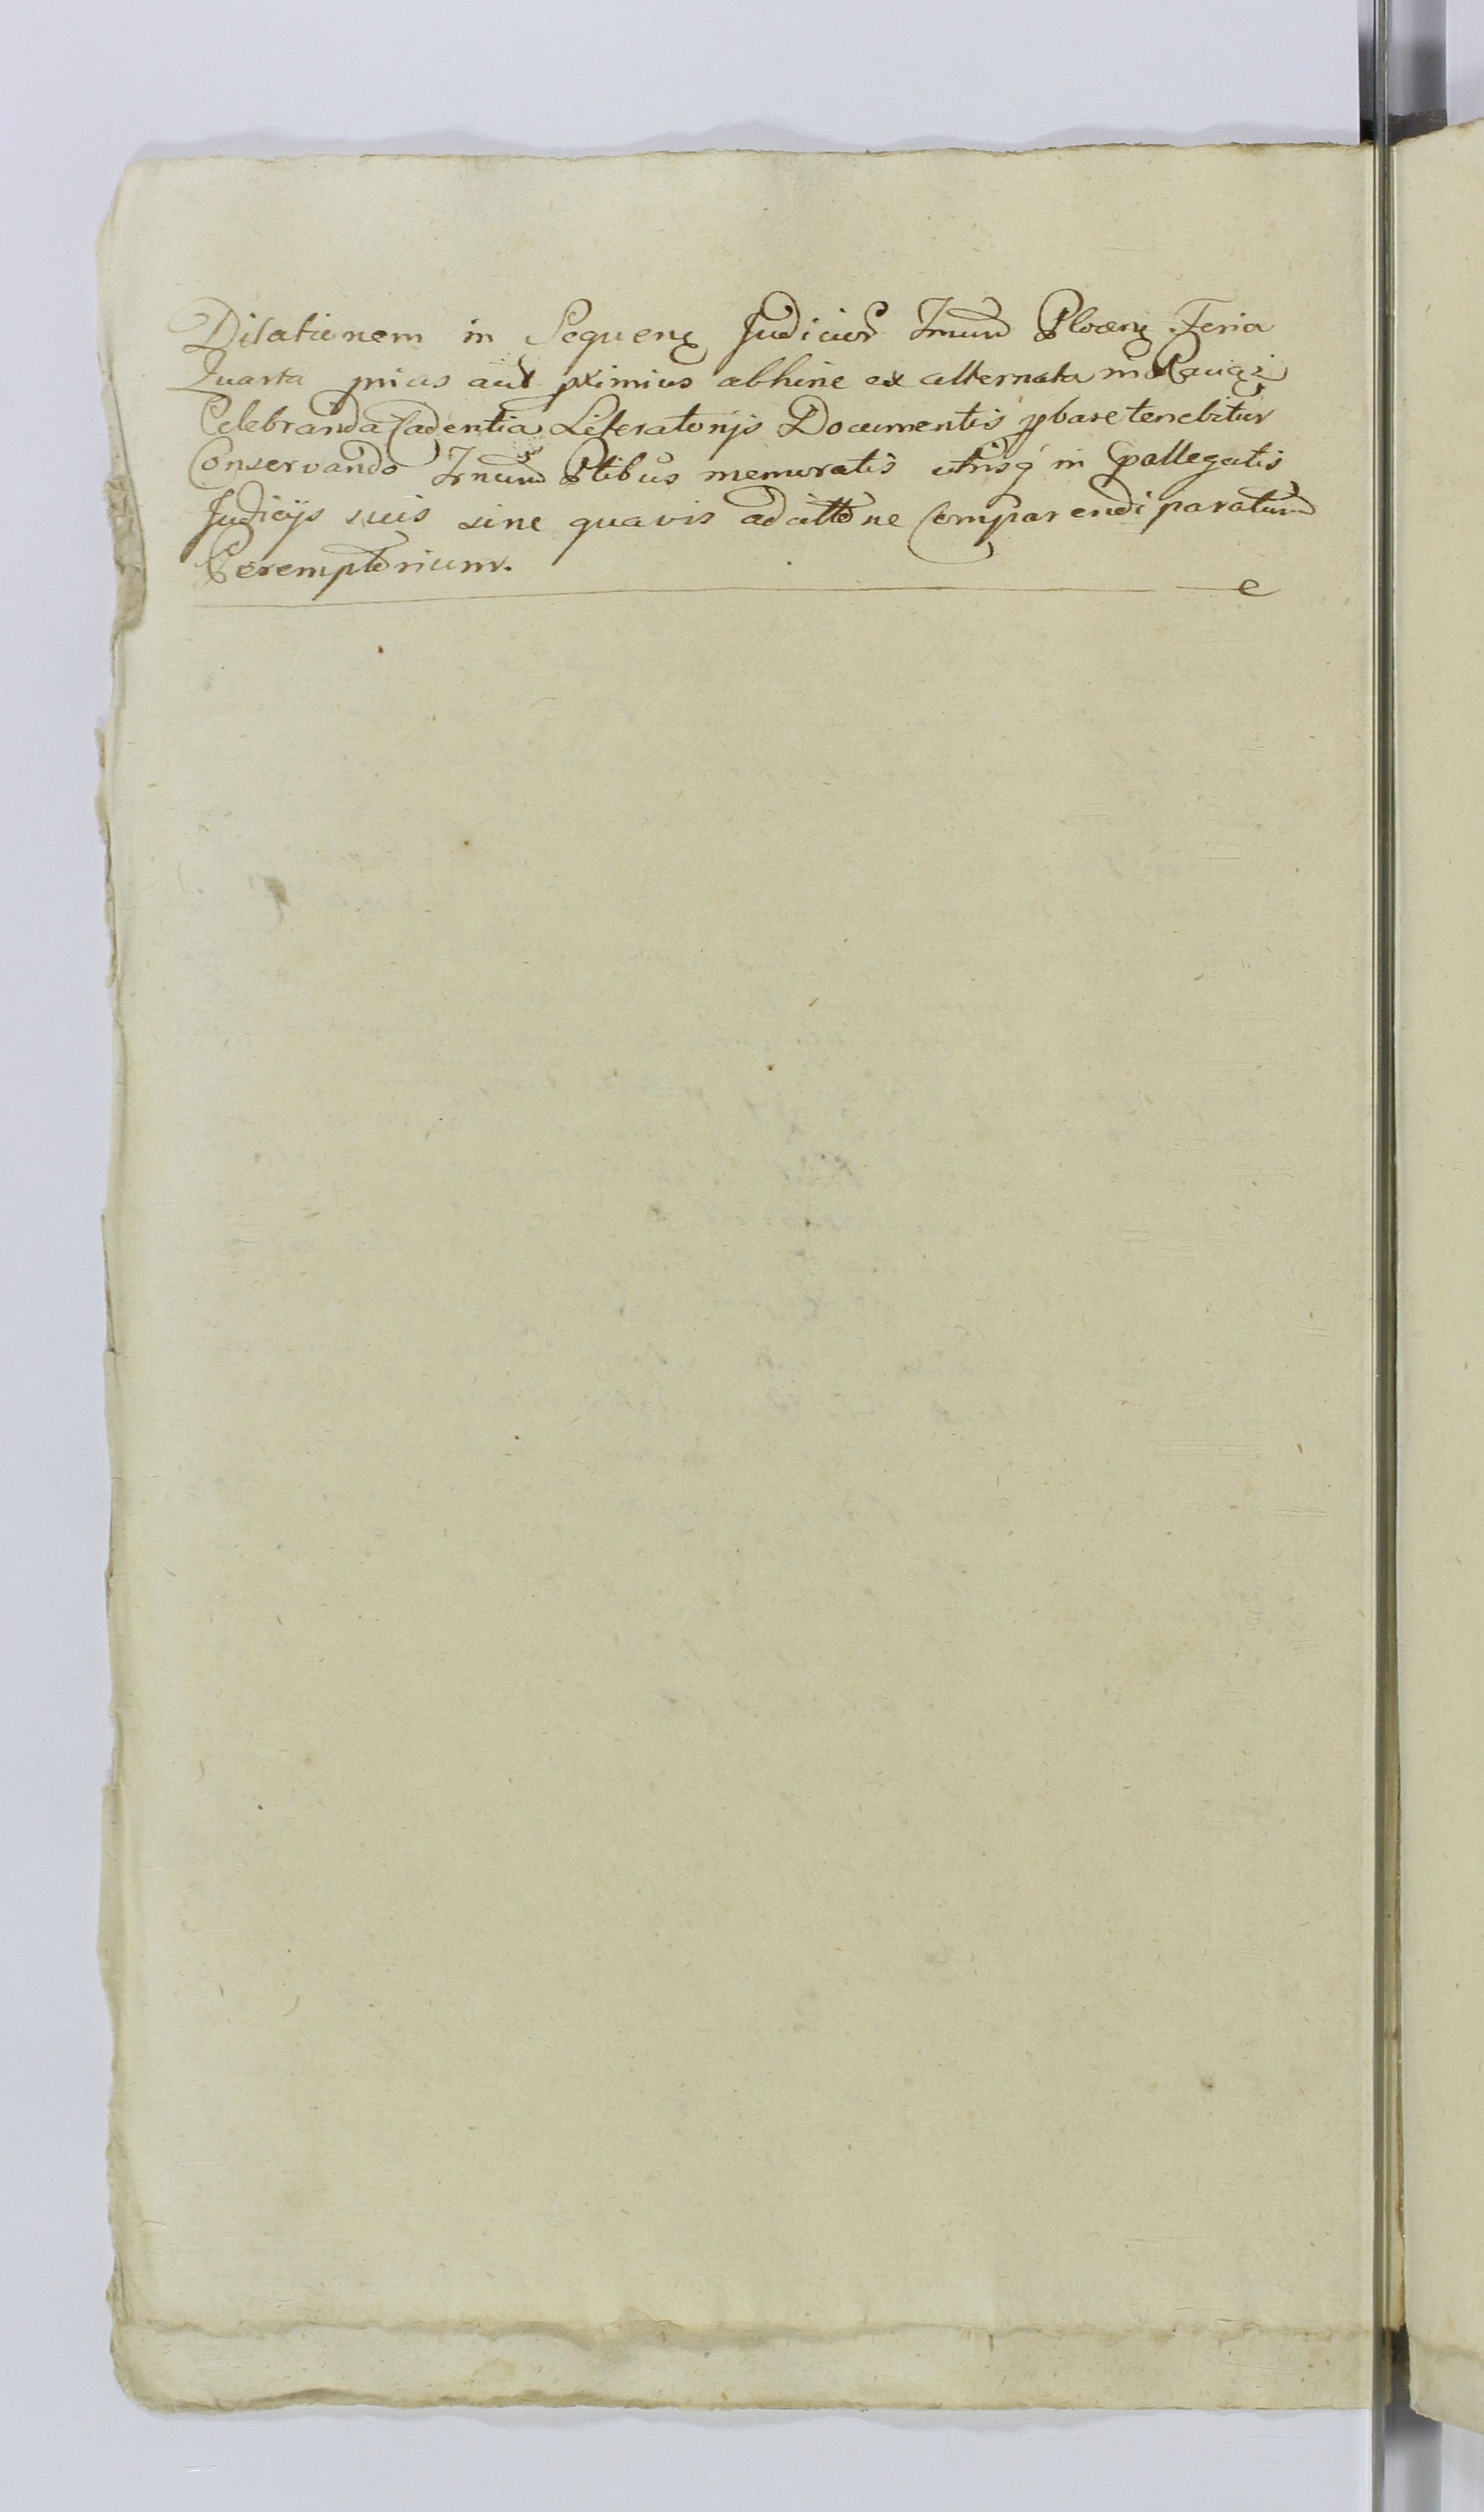 Dilationem in Sequenꝫ Judicior Tmum Plocen Feria
Quarta prius aut pximius abhinc ex alternata in Raciąż
Celebranda Cadentia Literatorijs Documentis pbare tenebitur
Conservando Tnum Ptibus memoratis utrisq in pallegatis
Judicijs suis sine quavis adcittone Comparendi paratum
Peremptorium.